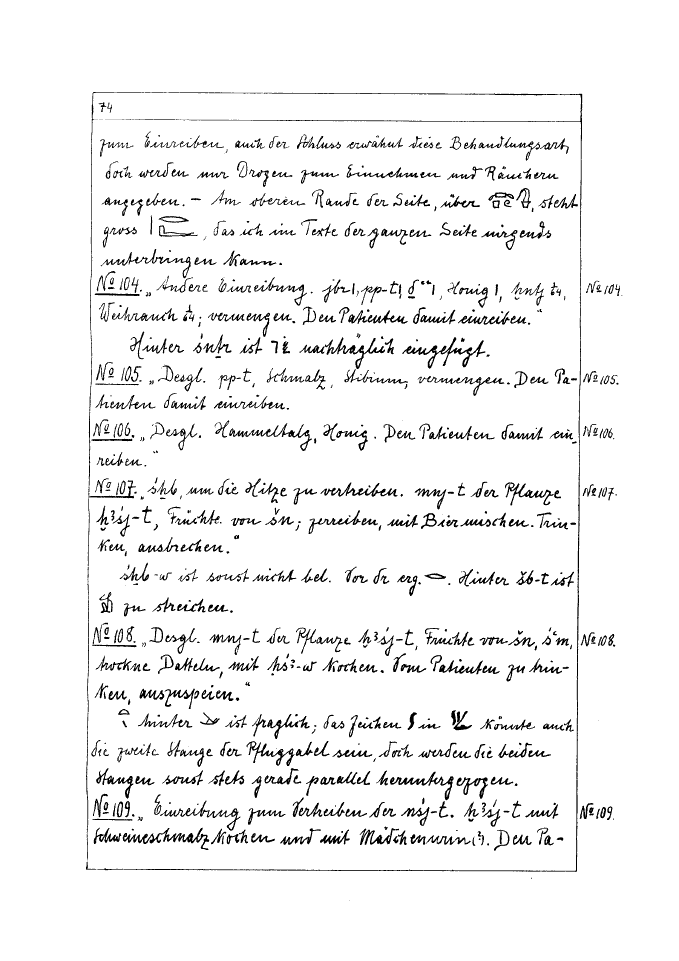 74
zum Einreiben, auch der Schluss erwähnt diese Behandlungsart,
doch werden nur Drogen zum Einnehmen und Räuchern
angegeben. – Am oberen Rande der Seite, über , steht
gross , das ich im Texte der ganzen Seite nirgends
unterbringen kann.
No 104. „Andere Einreibung. jbr 1, pp-t 1, Honig 1, ḫntj ¼, No 104.
Weihrauch ¼; vermengen. Den Patienten damit einreiben."
Hinter śnṯr ist nachträglich eingefügt.
No 105. „Desgl. pp-t, Schmalz, Stibium, vermengen. Den Pa- No 105.
tienten damit einreiben.
No 106. „Desgl. Hammeltalg, Honig. Den Patienten damit ein- No 106.
reiben."
No 107. „śḫb, um die Hitze zu vertreiben. mnj-t der Pflanze No 107.
ḫ³śj-t, Früchte von šn; zerreiben, mit Bier mischen. Trin-
ken, ausbrechen."
śḫb-w ist sonst nicht bel. Vor dr erg. . Hinter šb-t ist
zu streichen.
No 108. „Desgl. mnj-t der Pflanze ḫ³śj-t, Früchte von šn, š́m, No 108.
trockne Datteln, mit ḥś³-w kochen. Vom Patienten zu trin-
ken, auszuspeien."
hinter ist fraglich; das Zeichen in könnte auch
die zweite Stange der Pfluggabel sein, doch werden die beiden
Stangen sonst stets gerade parallel heruntergezogen.
No 109. „Einreibung zum Vertreiben der nśj-t. ḫ³śj-t mit No 109.
Schweineschmalz kochen und mit Mädchenurin (?). Den Pa-